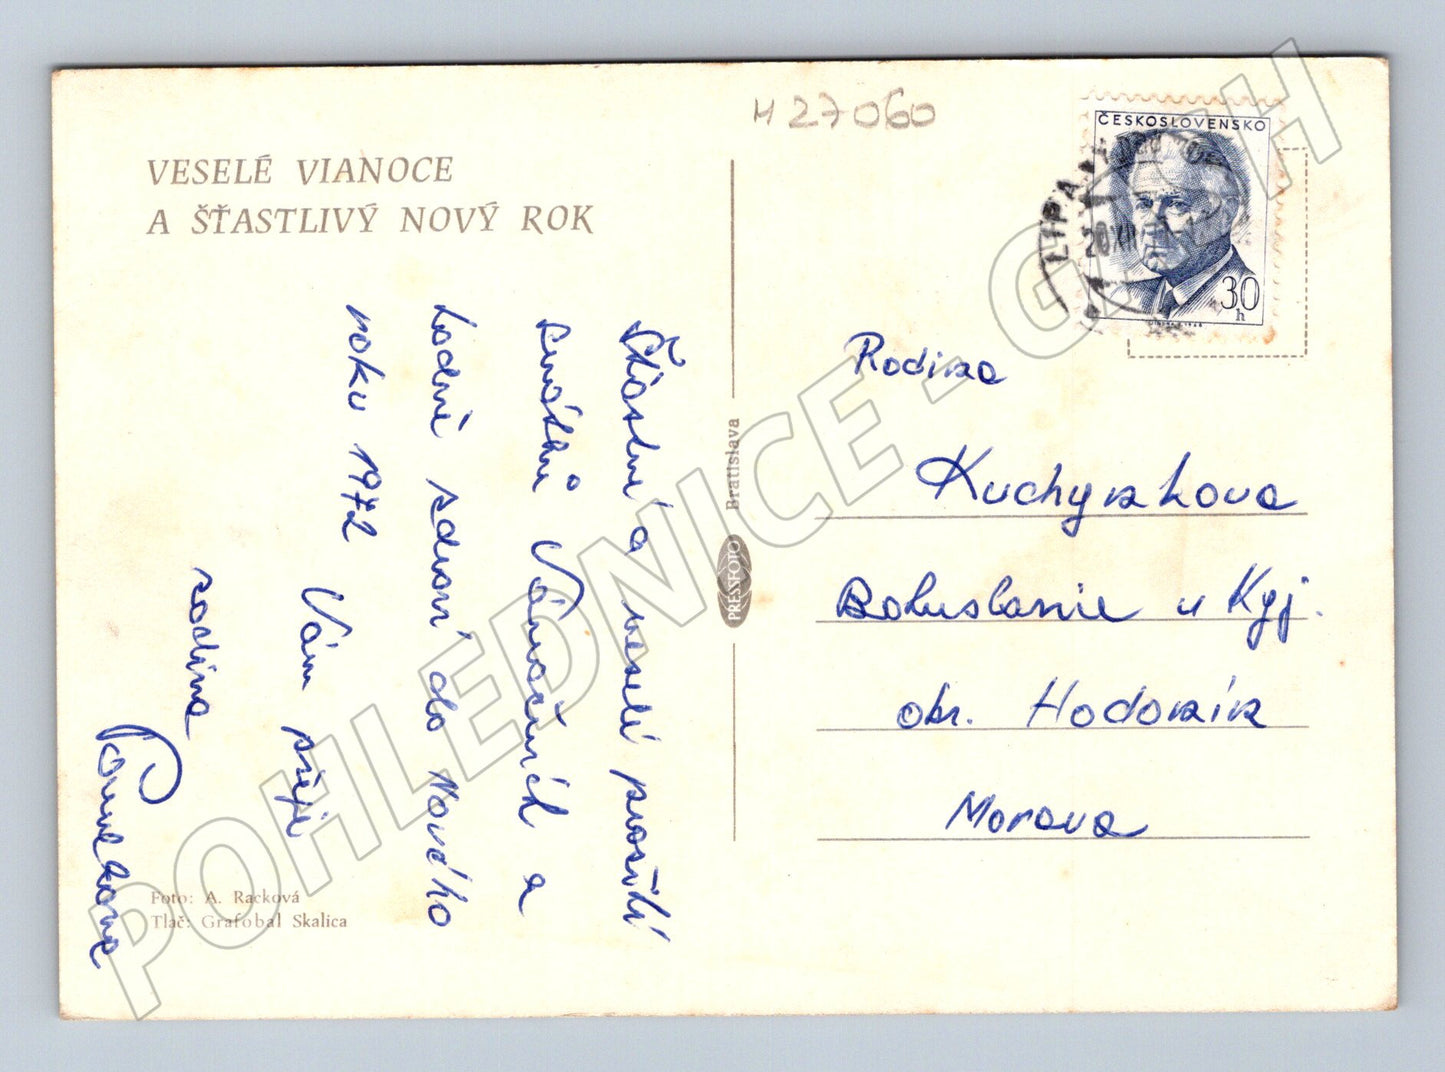 H 27060
VESELÉ VIANOCE
A ŠŤASTLIVÝ NOVÝ ROK
ČESKOSLOVENSKO
30
h
LIPA
20 XII
Štastné a veselé prožití
svátků Vánočních a
hodně zdraví do Nového
roku 1972
Vám přeje
rodina
PRESSFOTO Bratislava
Rodina
Kuchyňkova
Bohuslavice u Kyj.
okr. Hodonín
Morava
Foto: A. Racková
Tlač: Grafobal Skalica
POHLEDNICE - GASH